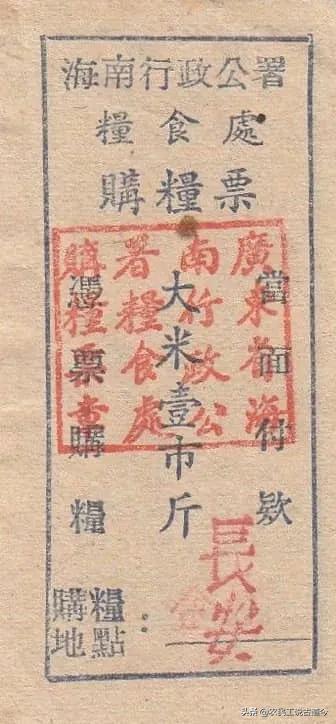 海南行政公署
糧食處
購糧票
當面付欵
大米壹市斤
憑票購糧
廣東省海
南行政公
署糧食處
購糧票章
購糧地點：
長安
头条 @农民工说古道今